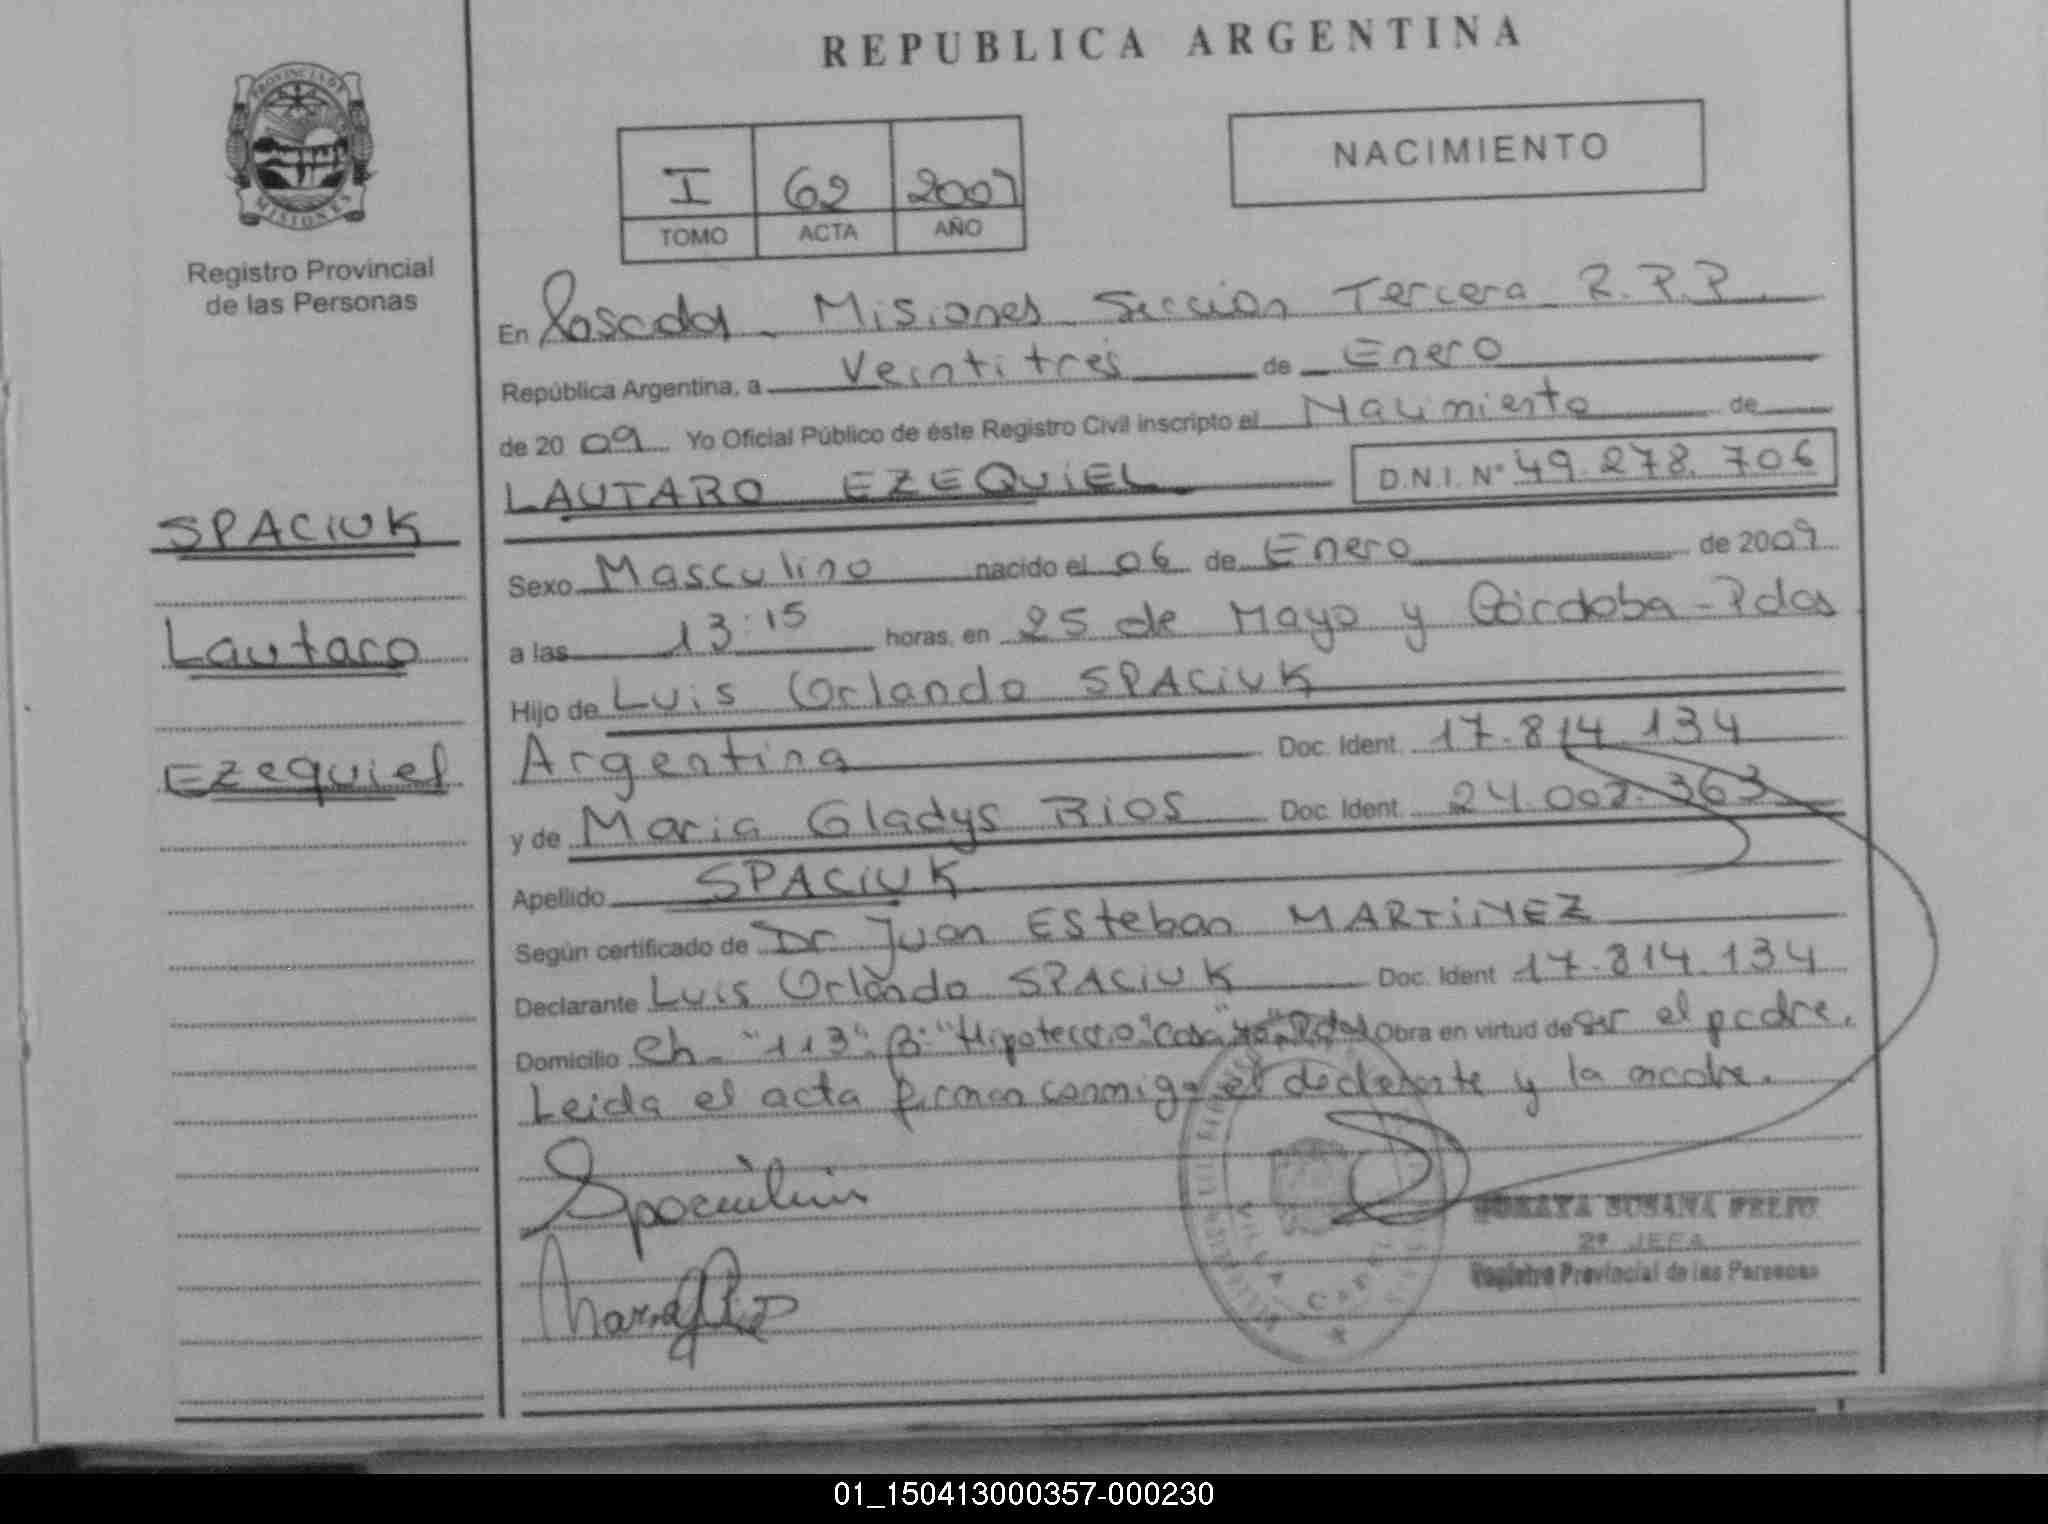 REPUBLICA ARGENTINA
PROVINCIA DE
MISIONES
Registro Provincial
de las Personas
I 62 2009
TOMO ACTA AÑO
NACIMIENTO
En Posadas - Misiones Sección Tercera R.P.P.
República Argentina, a Veintitrés de Enero
de 20 09 Yo Oficial Público de éste Registro Civil inscripto el Nacimiento de
LAUTARO EZEQUIEL D.N.I. Nº 49.278.706
SPACIUK
Lautaro
Ezequiel
Sexo Masculino nacido el 06 de Enero de 2009
a las 13:15 horas, en 25 de Mayo y Córdoba - Pdas
Hijo de Luis Orlando SPACIUK
Argentina Doc. Ident. 17.814.134
y de Maria Gladys RIOS Doc. Ident. 24.002.363
Apellido SPACIUK
Según certificado de Dr Juan Esteban MARTINEZ
Declarante Luis Orlando SPACIUK Doc. Ident 17.814.134
Domicilio Ch. "113" B: "Hipotecario" Casa Pdas Obra en virtud de ser el padre.
Leida el acta firman conmigo el declarante y la madre.
SUSANA
2º JEFA
Registro Provincial de las Personas
01_150413000357-000230